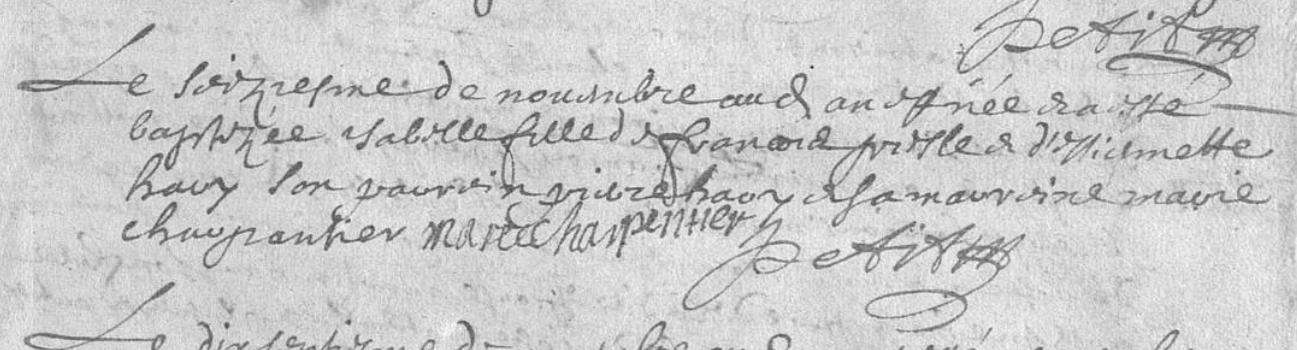 petit
Le seiziesme de nouembre aud an est née & a esté
baptizée isabelle fille de francois & d'estiennette
havy son parrain pierre havy & sa marraine marie
charpantier marie charpentier petit
Le dixseptiesme de